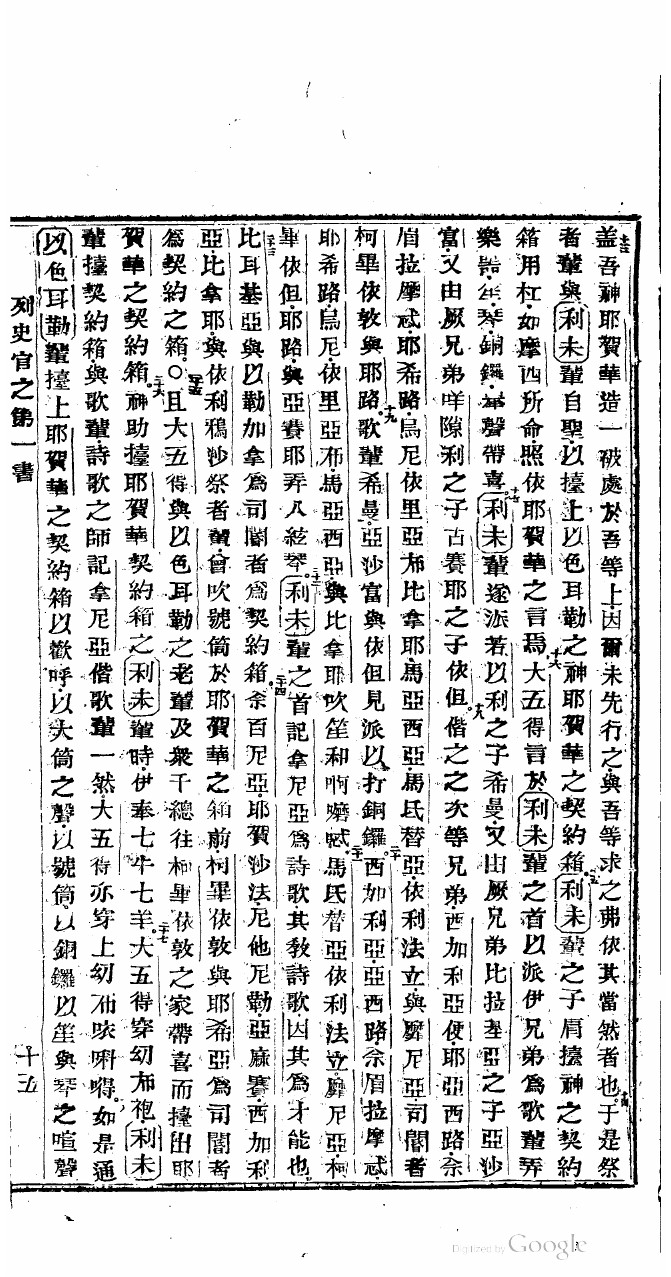 十三盖吾神耶賀華造一破處於吾等上因爾未先行之與吾等求之弗依其當然者也十四于是祭
者輩與利未輩自聖以擡上以色耳勒之神耶賀華之契約箱十五利未輩之子肩擡神之契約
箱用杠如摩西所命照依耶賀華之言焉十六大五得言於利未輩之首以派伊兄弟爲歌輩弄
樂器笙琴銅鑼舉聲帶喜十七利未輩遂派若以利之子希曼又由厥兄弟比拉基亞之子亞沙
富又由厥兄弟咩隙利之子古賽耶之子依但十八偕之之次等兄弟西加利亞便耶亞西路佘
眉拉摩忒耶希路烏尼依里亞布比拿耶馬亞西亞馬氐替亞依利法立與麾尼亞司閽者
柯畢依敦與耶路十九歌輩希曼亞沙富與依但見派以打銅鑼二十西加利亞亞西路佘眉拉摩忒
耶希路烏尼依里亞布馬亞西亞與比拿耶吹笙和啊嚰忒二十一馬氐替亞依利法立麾尼亞柯
畢依但耶路與亞賽耶弄八絃琴二十二利未輩之首記拿尼亞爲詩歌其敎詩歌因其爲才能也
二十三比耳基亞與以勒加拿爲司閽者爲契約箱二十四佘百尼亞耶賀沙法尼他尼勒亞麻賽西加利
亞比拿耶與依利鴉沙祭者輩曾吹號筒於耶賀華之箱前柯畢依敦與耶希亞爲司閽者
爲契約之箱○二十五且大五得與以色耳勒之老輩及衆千總往柯畢依敦之家帶喜而擡出耶
賀華之契約箱二十六神助擡耶賀華契約箱之利未輩時伊奉七牛七羊二十七大五得穿幼布袍利未
輩擡契約箱與歌輩詩歌之師記拿尼亞偕歌輩一然大五得亦穿上幼布㕹唎嘚二十八如是通
以色耳勒輩擡上耶賀華之契約箱以歡呼以大筒之聲以號筒以銅鑼以笙與琴之喧聲
列史官之第一書
十五
Digitized by Google